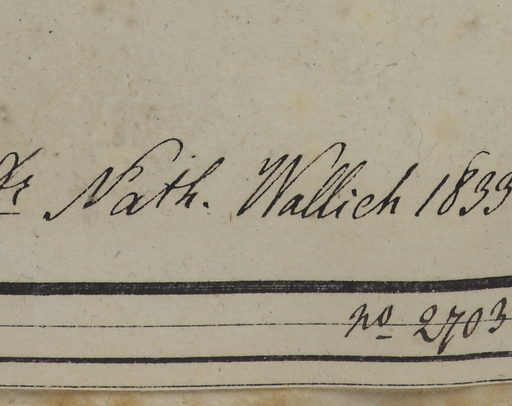 Dr Nath. Wallich 1833
no 2703